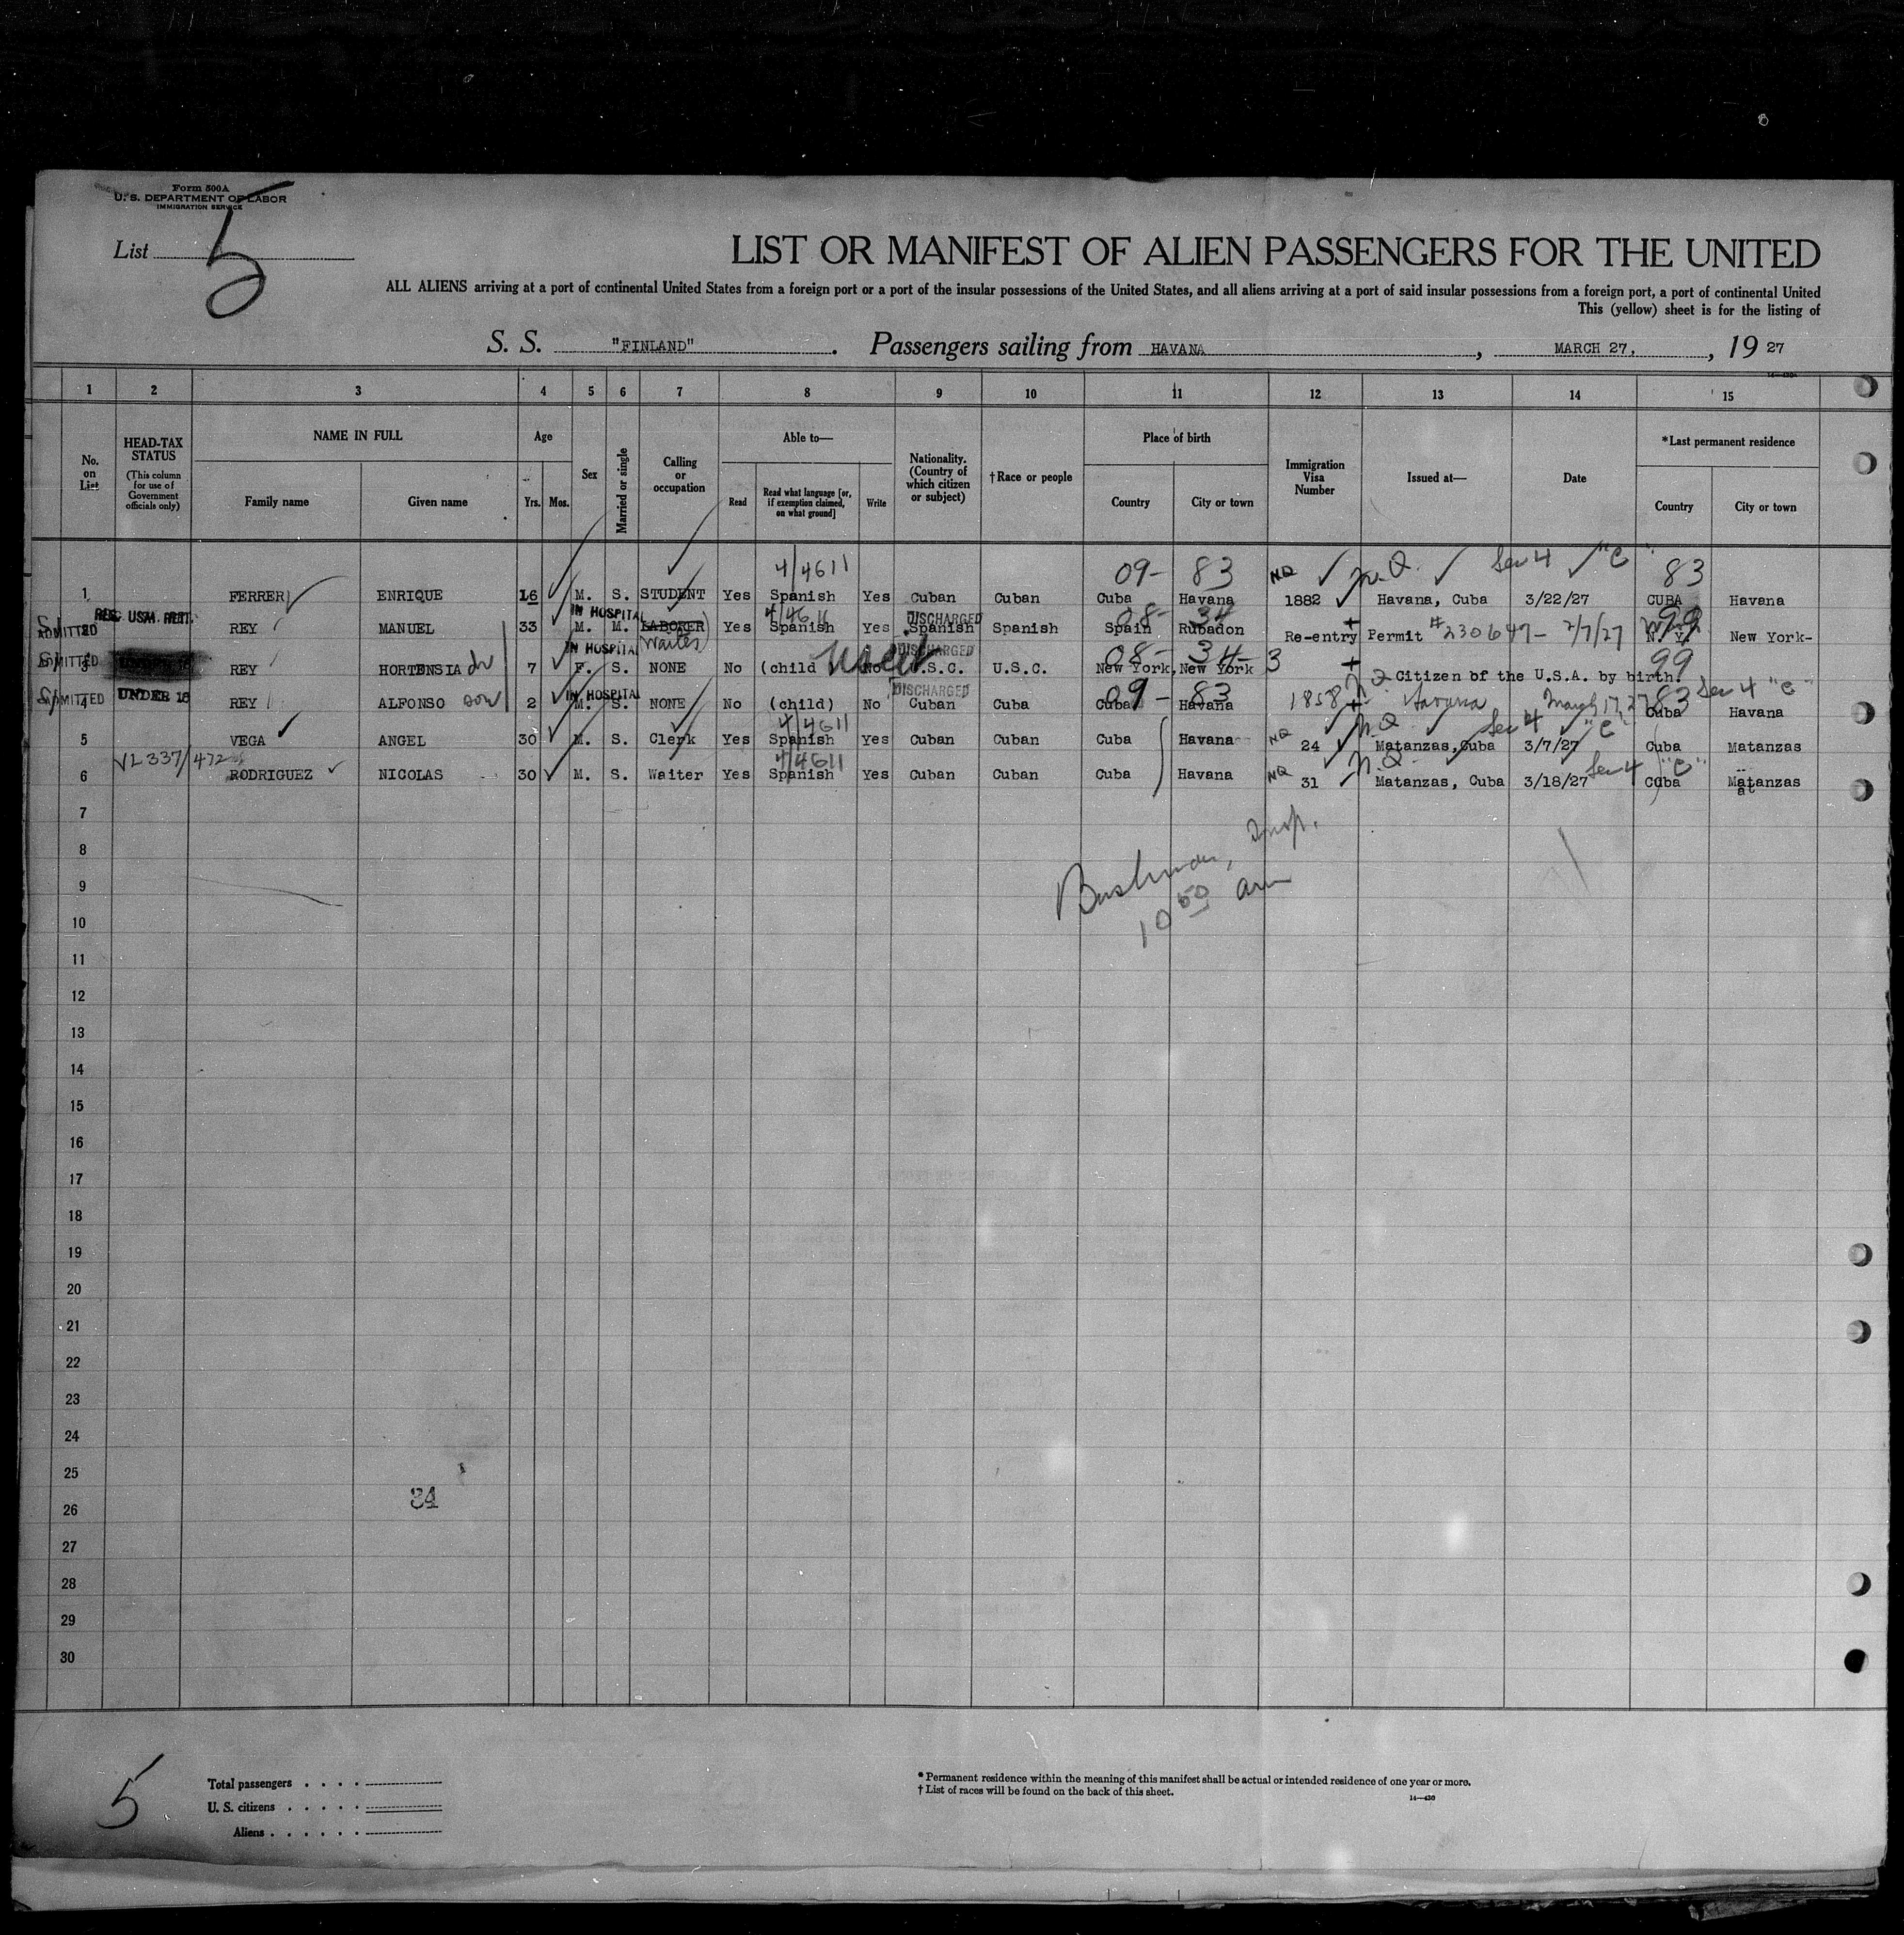 Form 500A
U. S. DEPARTMENT OF LABOR
IMMIGRATION SERVICE
List 5
LIST OR MANIFEST OF ALIEN PASSENGERS FOR THE UNITED
ALL ALIENS arriving at a port of continental United States from a foreign port or a port of the insular possessions of the United States, and all aliens arriving at a port of said insular possessions from a foreign port, a port of continental United
This (yellow) sheet is for the listing of
S. S. "FINLAND". Passengers sailing from HAVANA, MARCH 27, , 19 27
1 2 3 4 5 6 7 8 9 10 11 12 13 14 15
No. on List
HEAD-TAX STATUS (This column for use of Government officials only)
NAME IN FULL Family name Given name
Age Yrs. Mos.
Sex
Married or single
Calling or occupation
Able to— Read Read what language [or, if exemption claimed, on what ground] Write
Nationality. (Country of which citizen or subject)
†Race or people
Place of birth Country City or town
Immigration Visa Number
Issued at—
Date
*Last permanent residence Country City or town
4/4611 09- 83 NQ n.Q. Sec 4 "C" 83
1 FERRER ENRIQUE 16 M. S. STUDENT Yes Spanish Yes Cuban Cuban Cuba Havana 1882 Havana, Cuba 3/22/27 CUBA Havana
IN HOSPITAL 4/4611 DISCHARGED 08- 34 99
ADMITTED 2 REY MANUEL 33 M. M. LABORER Yes Spanish Yes Spanish Spanish Spain Rubadon Re-entry Permit #230647- 2/7/27 N.Y. New York-
IN HOSPITAL Waiter DISCHARGED 08- 34- 3 99
ADMITTED 3 REY HORTENSIA 7 F. S. NONE No (child No U.S.C. U.S.C. New York, New York Citizen of the U.S.A. by birth.
IN HOSPITAL DISCHARGED 09- 83 83 Sec 4 "C"
ADMITTED 4 UNDER 16 REY ALFONSO son 2 M. S. NONE No (child) No Cuban Cuba Cuba Havana 1858 Havana March 17, 27 Cuba Havana
4/4611 NQ n.Q. Sec 4 "C"
5 VEGA ANGEL 30 M. S. Clerk Yes Spanish Yes Cuban Cuban Cuba Havana 24 Matanzas, Cuba 3/7/27 Cuba Matanzas
VL 337/472 4/4611 NQ n.Q. Sec 4 "C"
6 RODRIGUEZ NICOLAS 30 M. S. Waiter Yes Spanish Yes Cuban Cuban Cuba Havana 31 Matanzas, Cuba 3/18/27 Cuba Matanzas
7
8
Insp.
9
10 50 am
10
11
12
13
14
15
16
17
18
19
20
21
22
23
24
25
34
26
27
28
29
30
5
Total passengers . . . .
U. S. citizens . . . . .
Aliens . . . . . .
* Permanent residence within the meaning of this manifest shall be actual or intended residence of one year or more.
† List of races will be found on the back of this sheet.
14—430